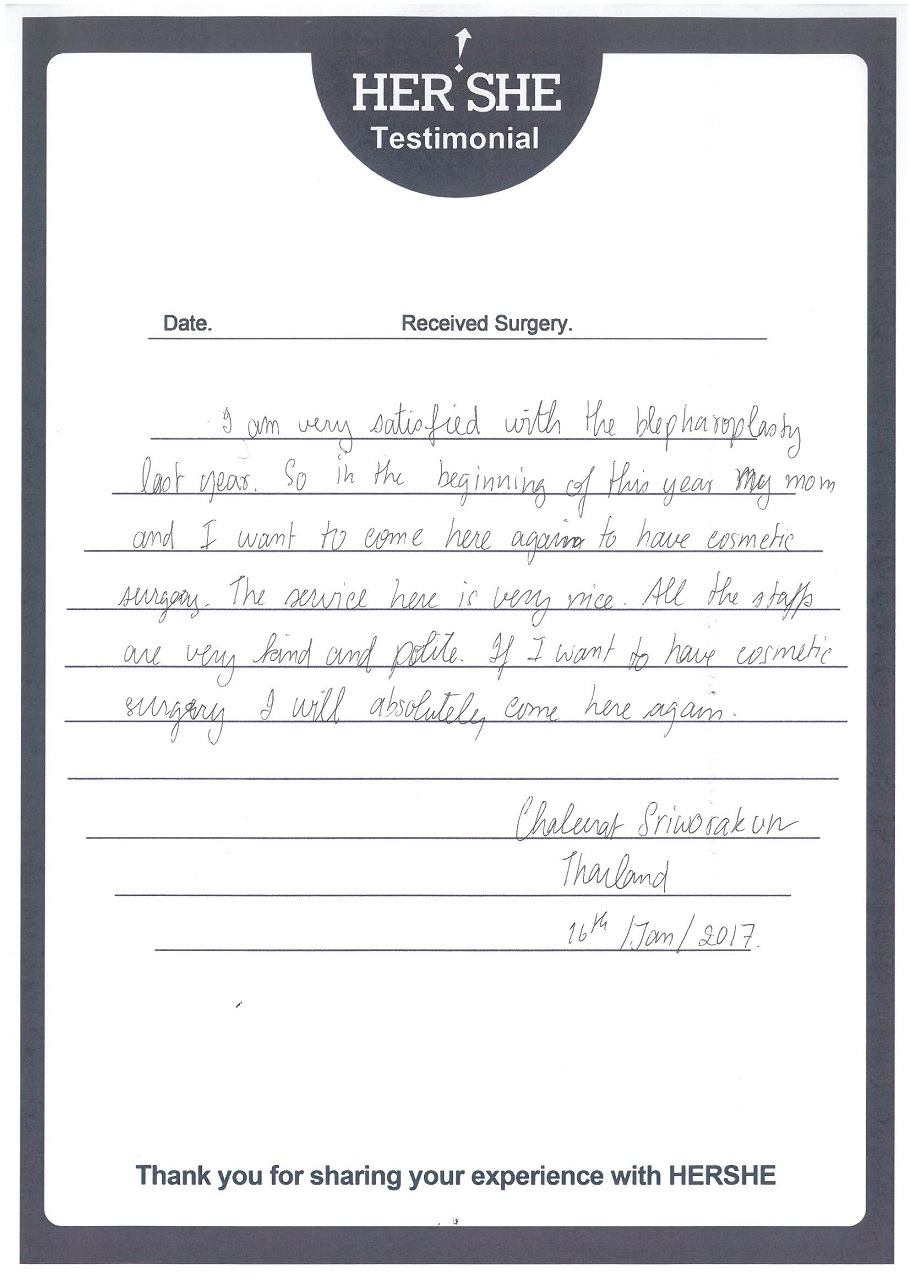 HER SHE
Testimonial
Date. Received Surgery.
I am very satisfied with the blepharoplasty
last year. So in the beginning of this year my mom
and I want to come here again to have cosmetic
surgery. The service here is very nice. All the staffs
are very kind and polite. If I want to have cosmetic
surgery I will absolutely come here again.
Sriworakun
Thailand
16th /Jan/ 2017.
Thank you for sharing your experience with HERSHE